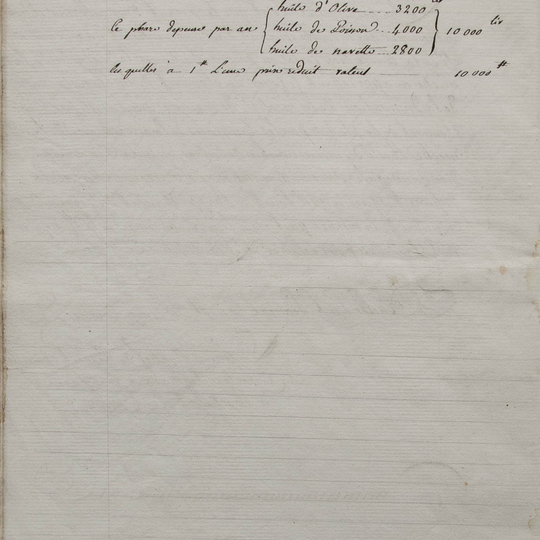 huile d'Olive ... 3200
le phare depense par an { huile de Poisson .. 4,000 } 10000 liv
huile de navette ... 2800
lesquelles à 1# L'une prix reduit valent 10000#